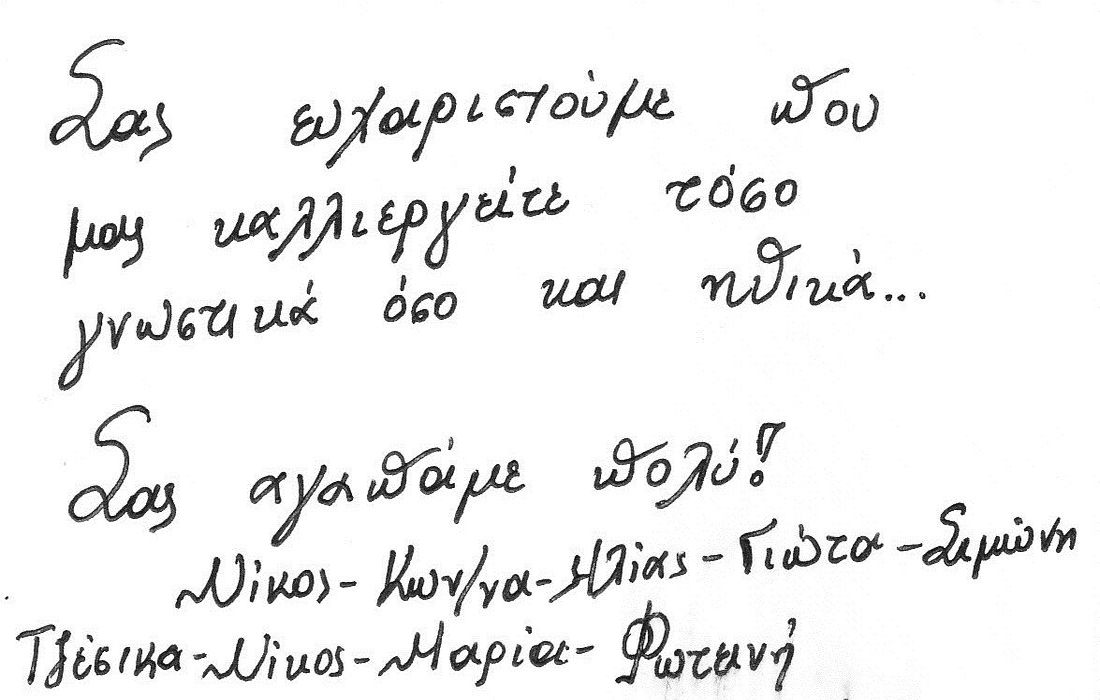 Σας ευχαριστούμε που
μας καλλιεργείτε τόσο
γνωστικά όσο και ηθικά...
Σας αγαπάμε πολύ!
Νίκος - Κων/να - Ηλίας - Γιώτα - Σιμώνη
Τζέσικα - Νίκος - Μαρία - Φωτεινή